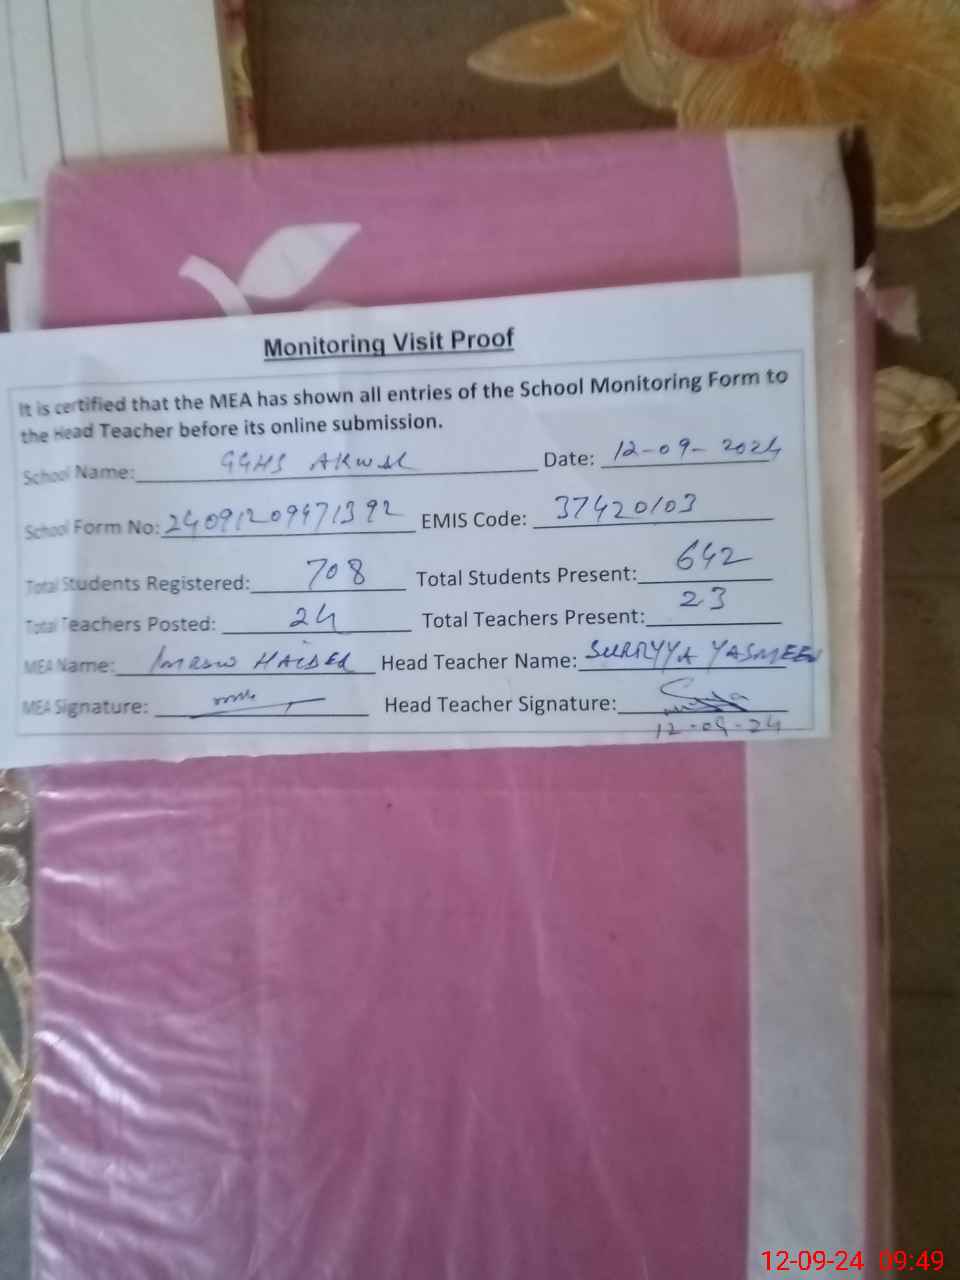 Monitoring Visit Proof
It is certified that the MEA has shown all entries of the School Monitoring Form to
the Head Teacher before its online submission.
School Name: GGHS Date: 12-09-2024
School Form No: EMIS Code: 37420103
Total Students Registered: 708 Total Students Present: 642
Total Teachers Posted: 24 Total Teachers Present: 23
MEA Name: HAIDER Head Teacher Name: SURRYYA YASMEEN
MEA Signature: Head Teacher Signature:
12-09-24
12-09-24 09:49